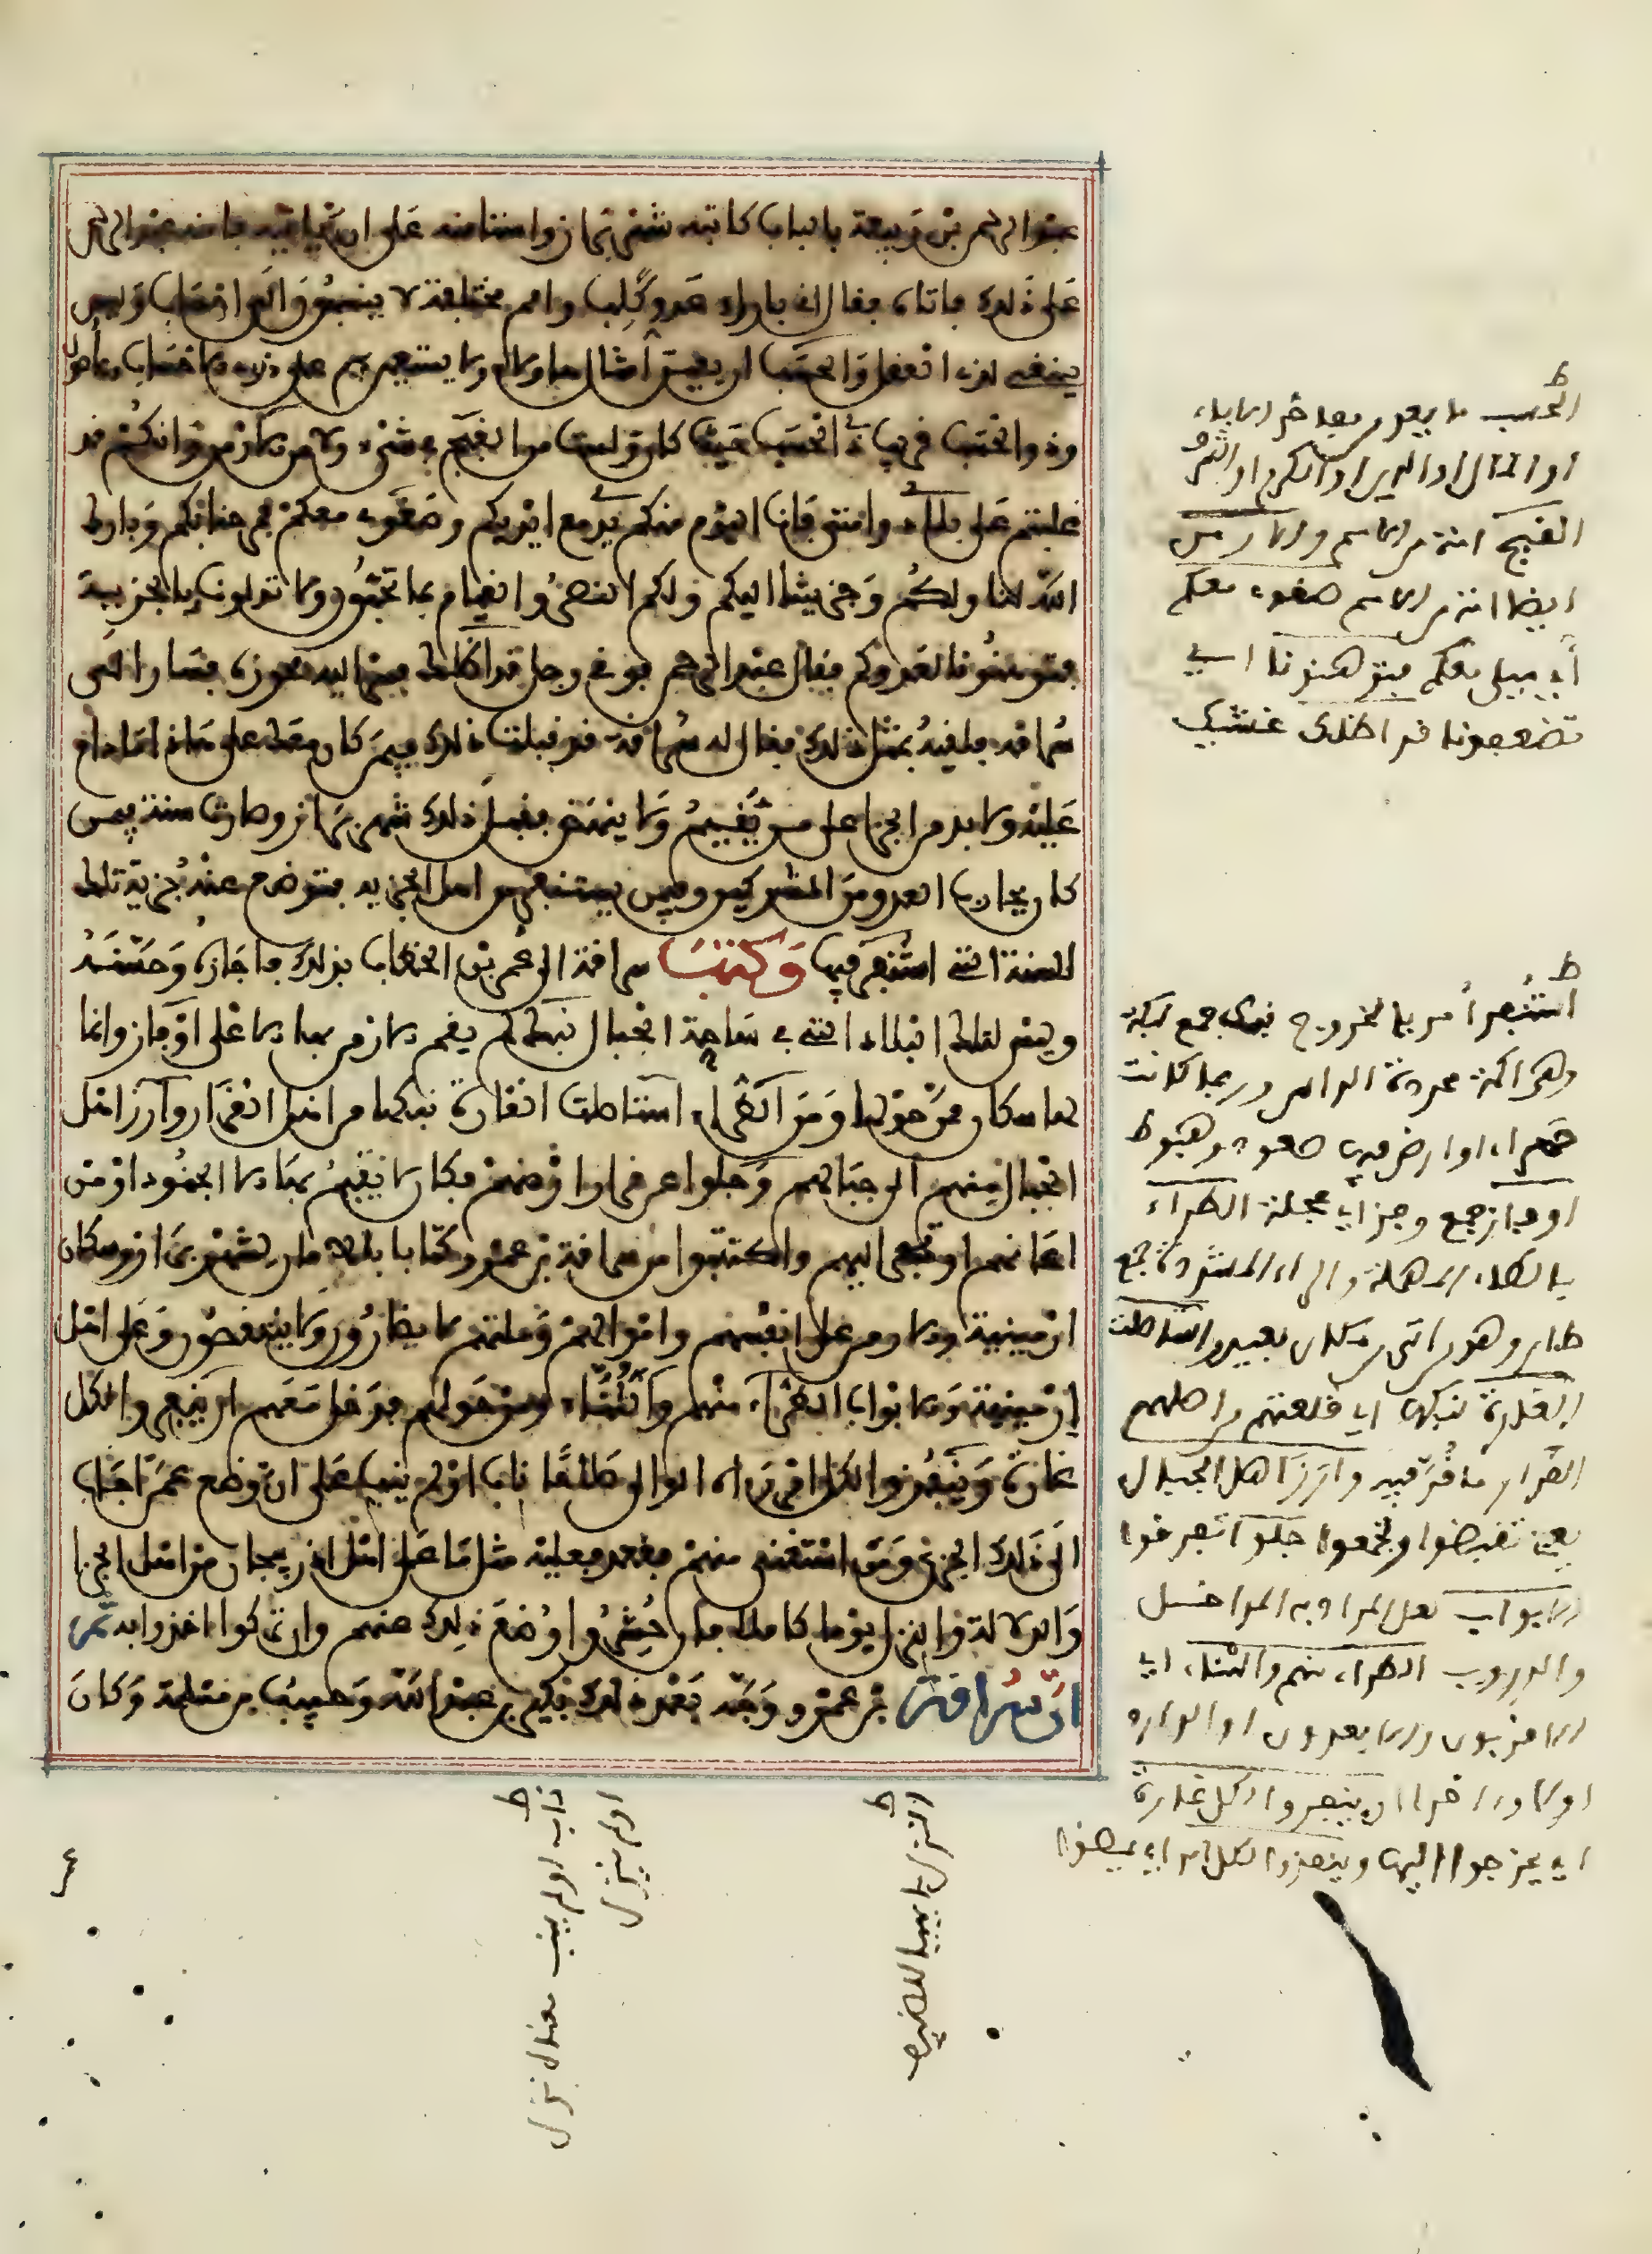 عبد الرحمن بن ربيعة بالباب كاتبه شهربراز واستامنه على ان ياتيه فامنه عبد الرحمن
على ذلك فاتاه فقال انى بازاء عدو كلب وامم مختلفة لا ينسبون الى احساب وليس
ينبغى لذى العقل والحسب ان يعين امثال هاولاء ولا يستعين بهم على ذوى الاحساب والاصول
وذو الحسب قريب ذى الحسب حيث كان ولست من القبج فى شىء ولا من الارمن وانكم قد
غلبتم على بلادى وامتى فانا اليوم منكم يدى مع ايديكم وصغوى معكم وبارك
الله لنا ولكم وجزيتنا اليكم ولكم النصر والقيام بما تحبون ولا تذلونا بالجزية
فتوهنونا لعدوكم فقال عبد الرحمن فوقى رجل قد اظلك فسر اليه فجوزه فسار الى
سراقة فلقيه بمثل ذلك فقال له سراقة قد قبلت ذلك فيمن كان معك على هاذا ما دام
عليه ولا بد من الجزا على من يقيم ولا ينهض فقبل ذلك شهربراز وصارت سنة فيمن
كان يحارب العدو من المشركين وفيمن يستنفر من اهل الجزية فتوضع عنه جزية تلك
السنة التى استنفر فيها وكتب سراقة الى عمر بن الخطاب بذلك فاجازه وحسنه
وليس لتلك البلاد التى فى ساحة الجبال نبك لم يقم الارمن بها الا على اوفاز وانما
هم سكان ممن حولها ومن الطراء استاصلت الغارة نبكها من اهل القرار وارز اهل
الجبال منهم الى جبالهم وجلوا عن قرار ارضهم فكان لا يقيم بها الا الجنود او من
اعانهم او تجر اليهم واكتتبوا من سراقة بن عمرو كتابا بالامان لشهربراز وسكان
ارمينية والارمن على انفسهم واموالهم وملتهم لا يضارون ولا ينتقصون وعلى اهل
ارمينية والابواب الطراء منهم والتناء ومن حولهم فدخل معهم ان ينفروا لكل
غارة وينفذوا لكل امر راه الوالى صلاحا ناب او لم ينب على ان توضع عمن اجاب
الى ذلك الجزى ومن استغنى منهم وقعد فعليه مثل ما على اهل اذربيجان من اهل الجزا
والدلالة والنزل يوما كاملا فان حشروا وضع ذلك عنهم وان تركوا اخذوا به ثم
ان سراقة بن عمرو وجه بعد ذلك بكير بن عبد الله وحبيب بن مسلمة وكان
ط
الحسب ما يعد من مفاخر الاباء
او المال او الدين او الكرم او الشرف
القبج امة من الاعاجم والارمن
ايضا امة من الاعاجم صغوى معكم
اى ميلى معكم فتوهنونا اى
تضعفونا قد اظلك غشيك
ط
استنفر امر بالخروج نبك جمع نبكة
وهى اكمة محددة الراس وربما كانت
حمراء او ارض فيها صعود وهبوط
اوفاز جمع وفز اى عجلة الطراء
بالطاء المهملة والراء المشددة جمع
طار وهو من اتى من مكان بعيد واستاصلت
الغارة نبكها اى قلعتهم من اصلهم
القرار ما قر فيه وارز اهل الجبال
يعنى تقبضوا وتجمعوا جلوا تفرقوا
الابواب لعل المراد به المداخل
والدروب الطراء منهم والتناء اى
الاقربون والابعدون او الواردون
اولا واخرا ان ينفروا لكل غارة
اى يخرجوا اليها وينفذوا لكل امر اى يمضوا
ط
ناب او لم ينب معناه نزل
او لم ينزل
ط
النزل ما يهيا للضيف